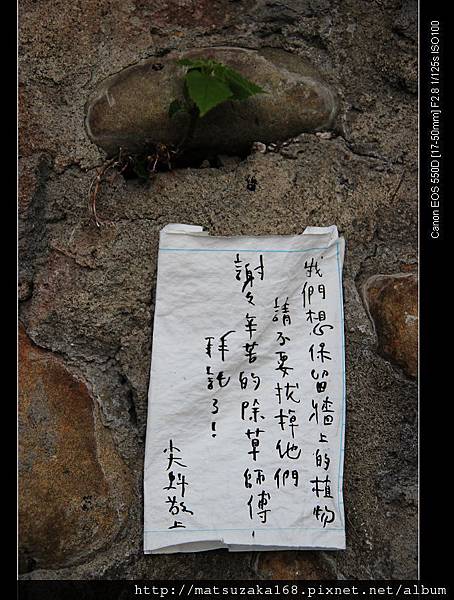 我們想保留牆上的植物
請不要拔掉他們
謝々辛苦的除草師傅!
拜託了!
敬上
Canon EOS 550D [17-50mm] F2.8 1/125s ISO100
http://matsuzaka168.pixnet.net/album